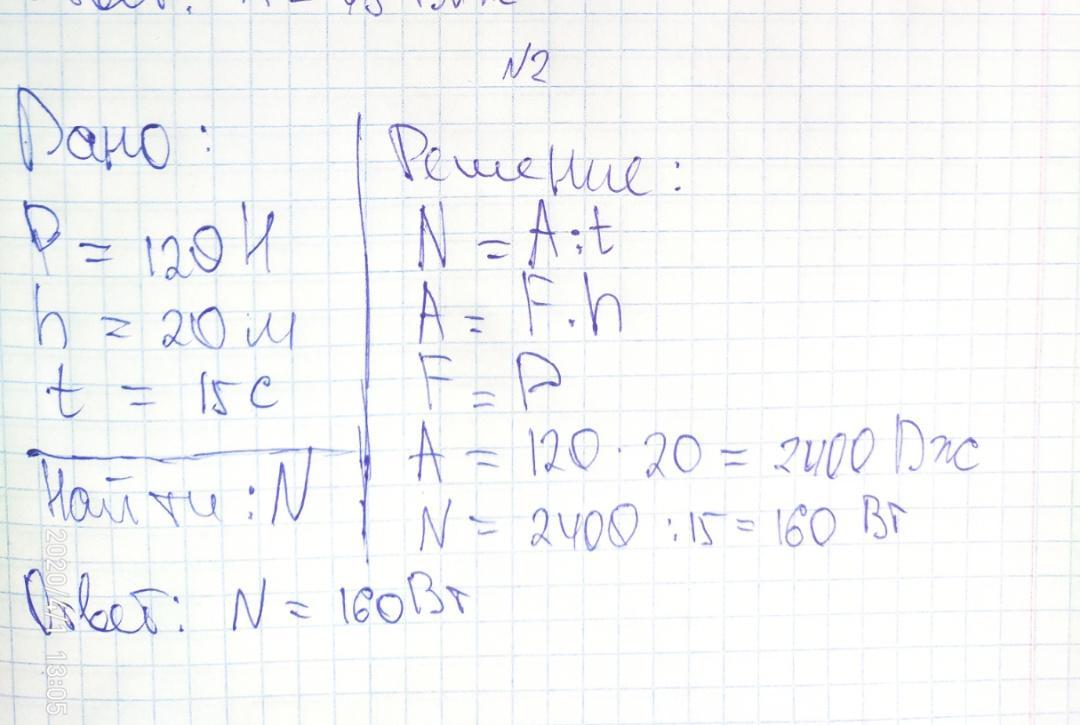 N2
Дано:
P = 120 Н
h = 20 м
t = 15 с
Найти: N
Решение:
N = A:t
A = F·h
F = P
A = 120 · 20 = 2400 Дж
N = 2400 :15 = 160 Вт
Ответ: N = 160 Вт
2020/4/1 13:05